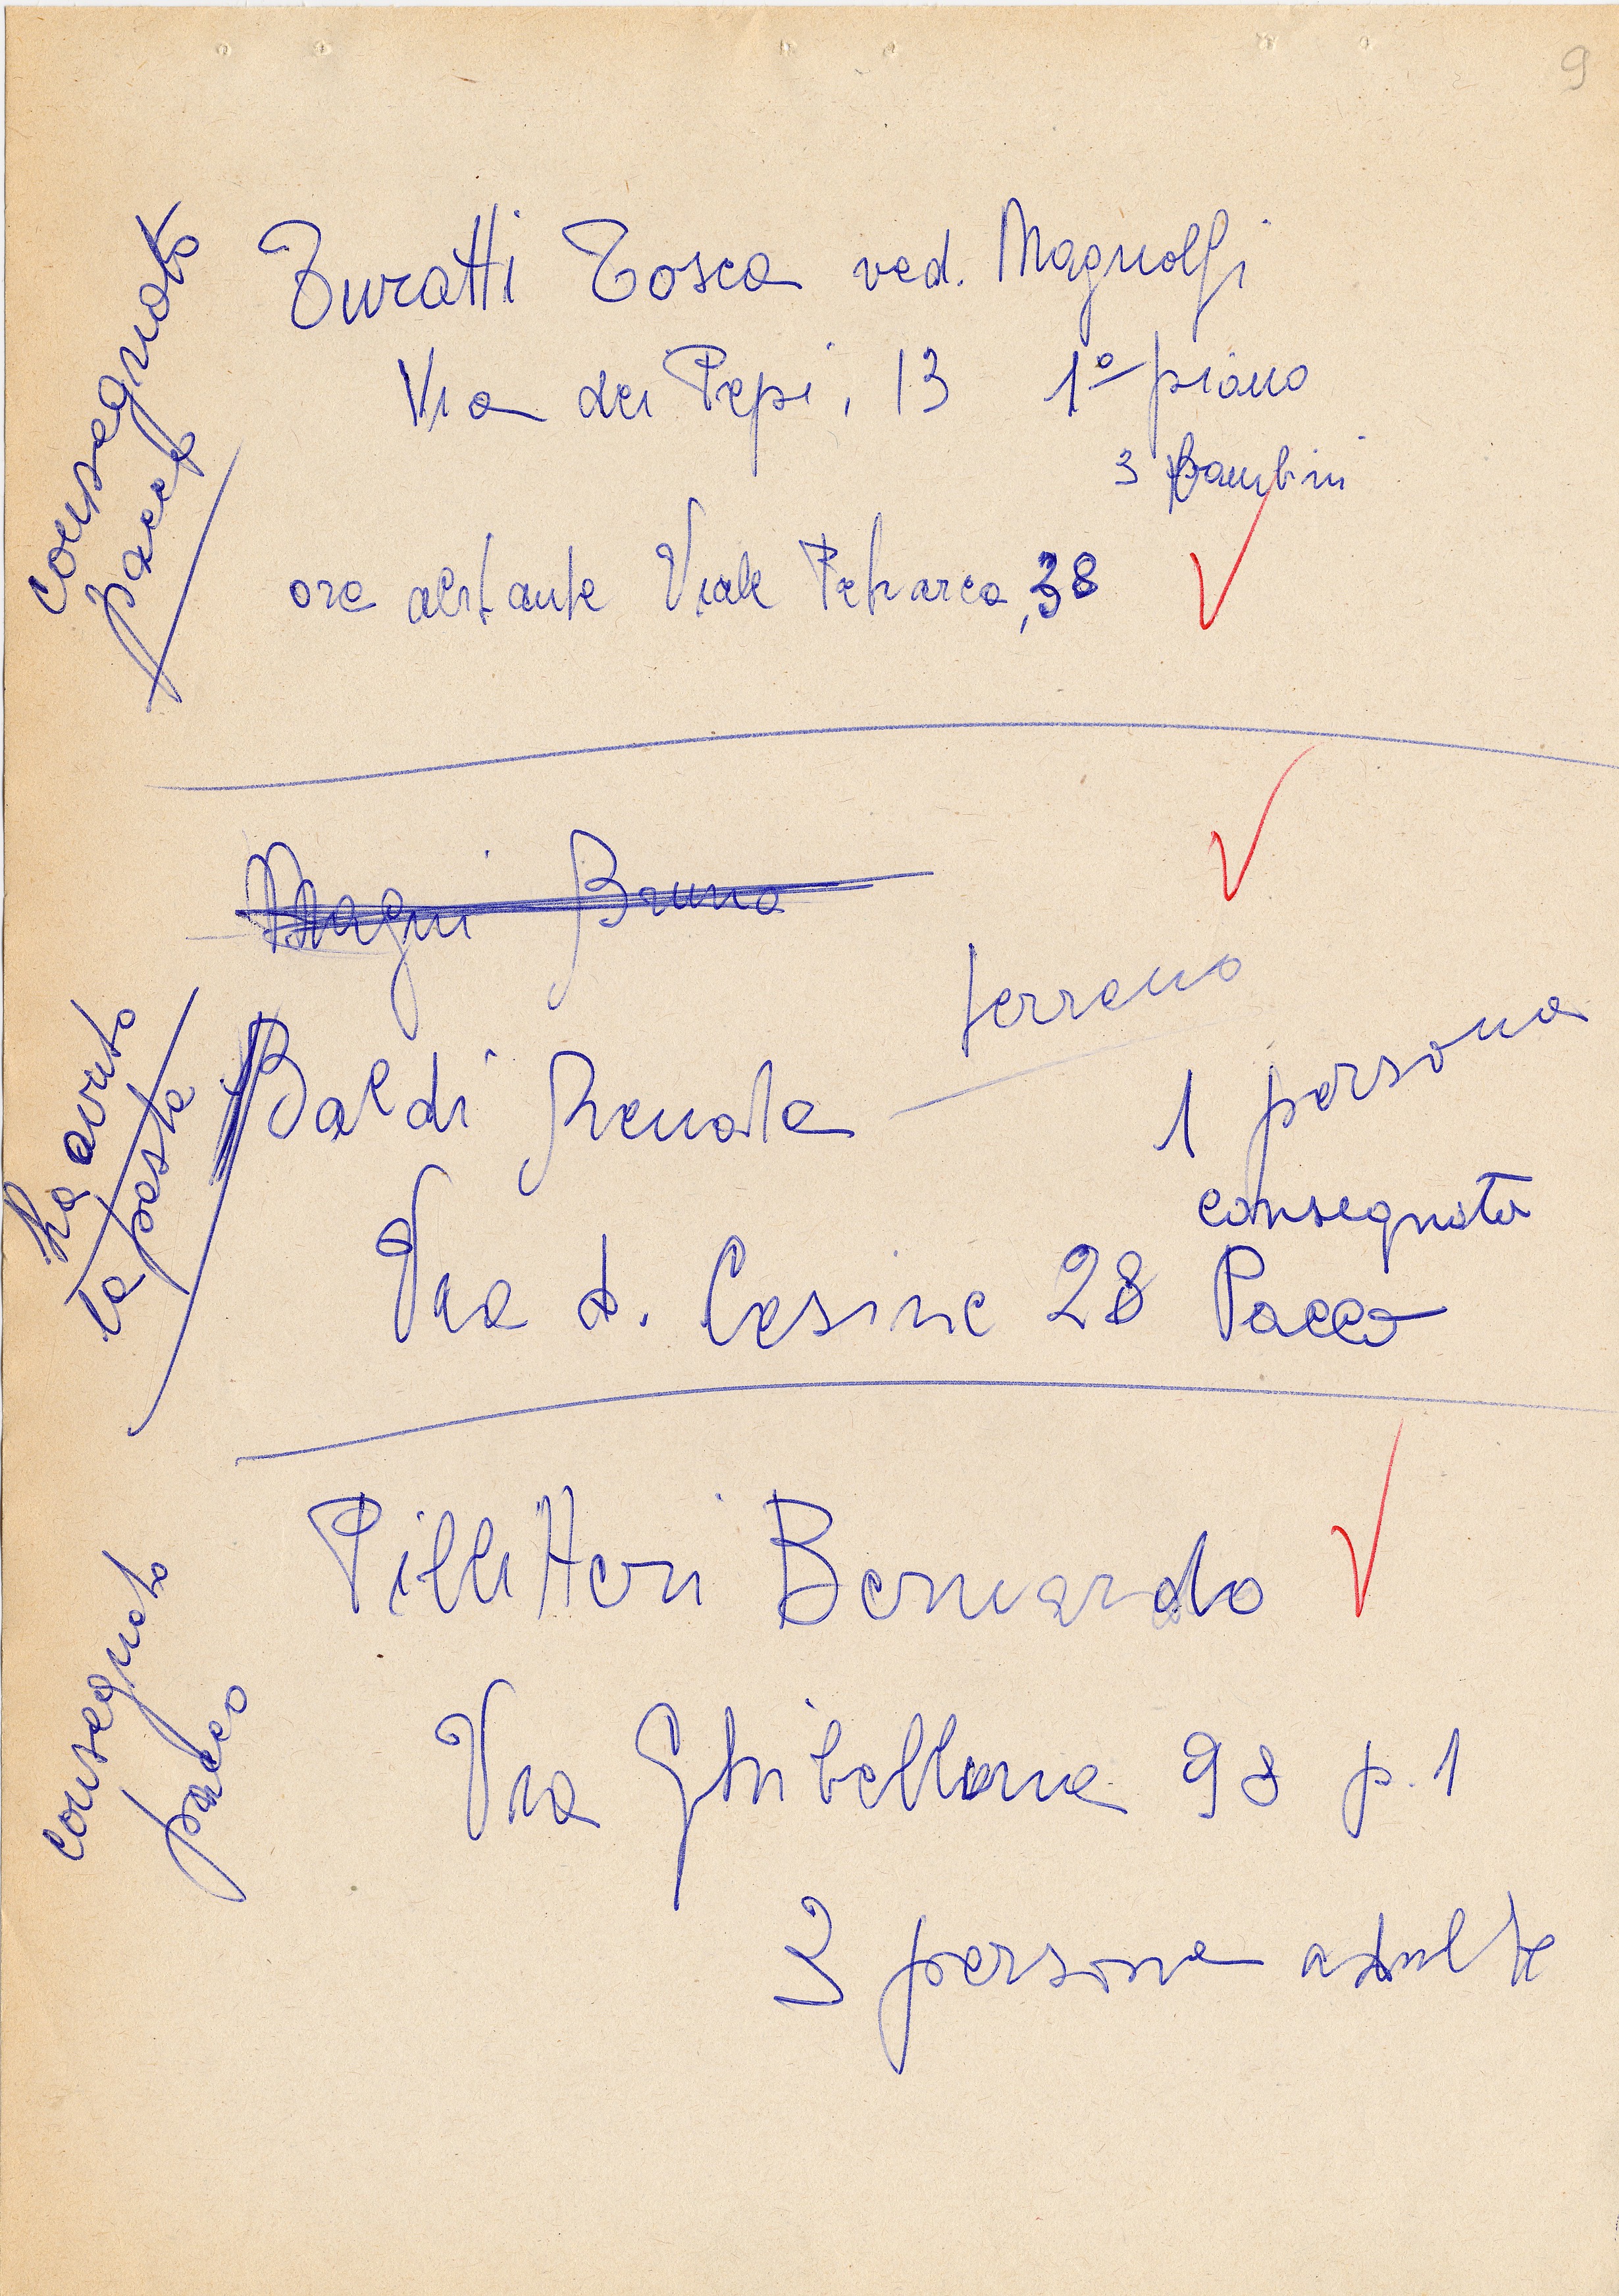 9
Turatti Tosca ved. Magnolfi
Via dei Pepi, 13 1º piano
3 bambini
ora abitante Viale Petrarca, 38
consegnato
pacco
Magni Bruno
terreno
Baldi Renata
1 persona
consegnato
Via d. Casine 28 Pacco
ha avuto
la posta
Pillitteri Bernardo
Via Ghibellina 98 p. 1
3 persone adulte
consegnato
pacco